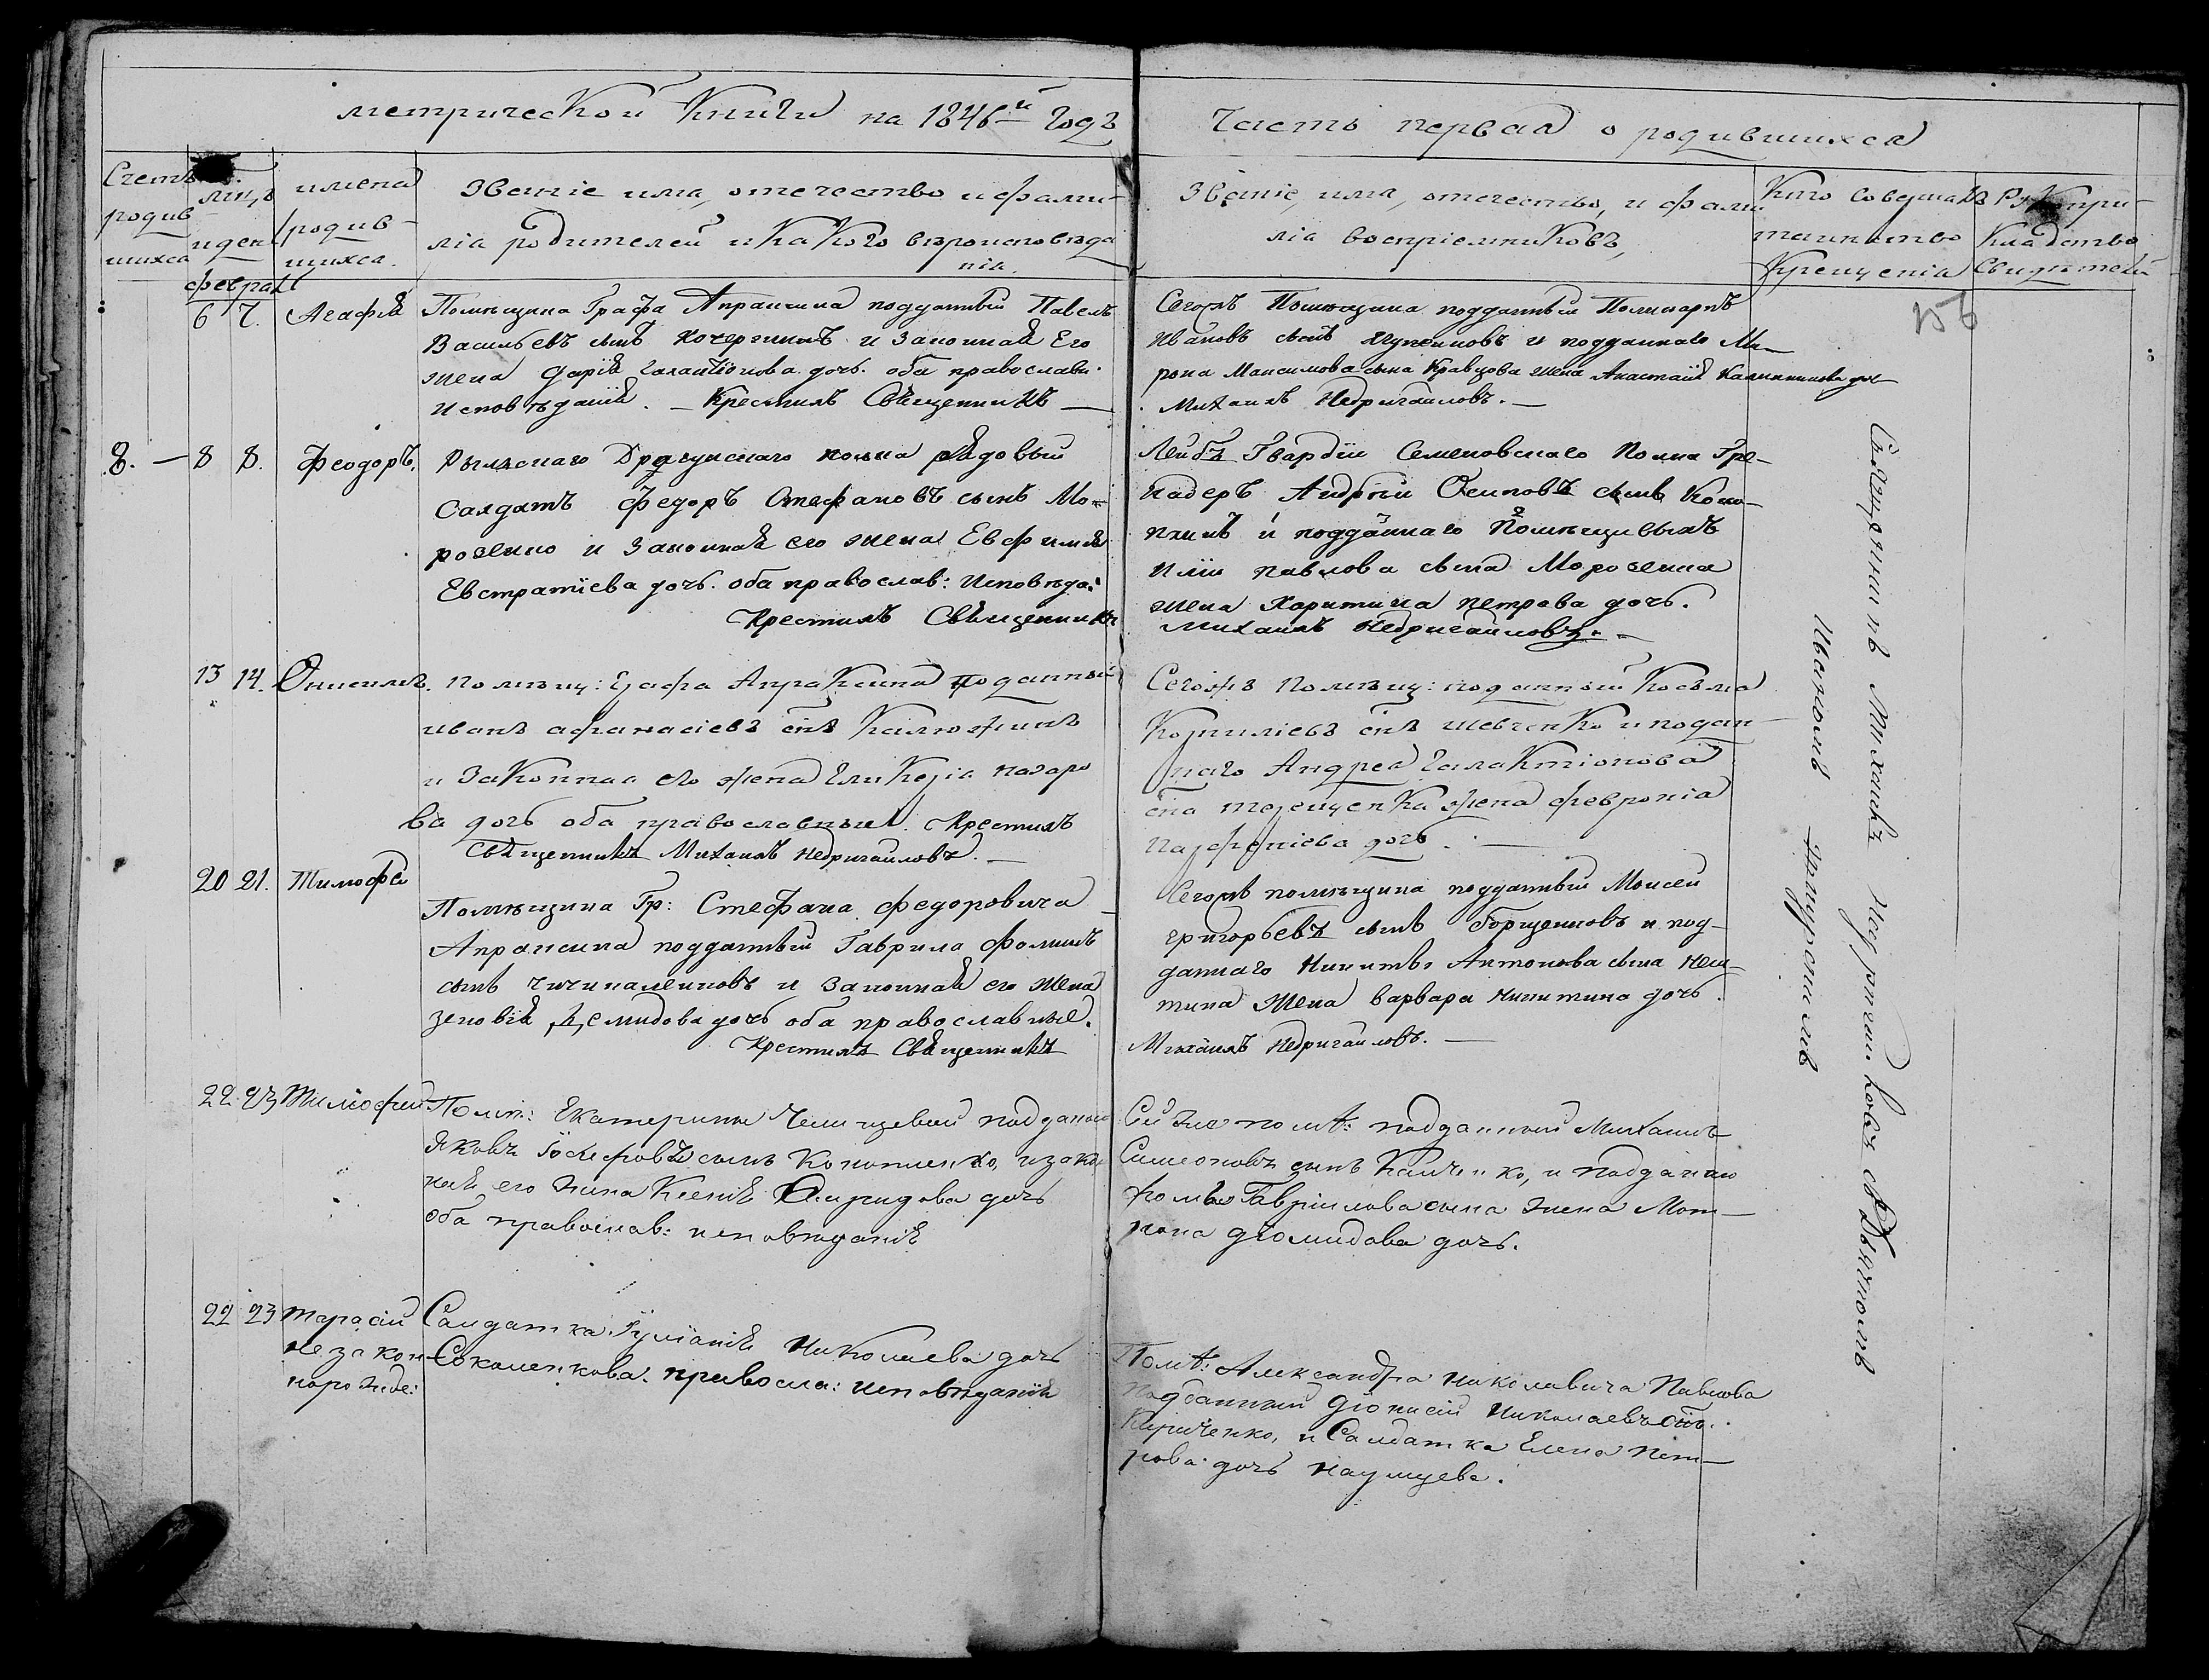 метрической Книги на 1846й Годъ
Часть первая о родившихся
Счетъ родив шихся
мцъ и ден
имена родив- шихся.
Званіе имя, отечество и фами-
лія родителей и какого вѣроисповѣда
нія.
Званіе, имя, отечество, и фами
лія воспріемниковъ,
Кто совершалъ
таинство
Крещенія
Рукопри-
кладство
Свидѣтелей
феврал
156
6 7. Агафія
Помѣщика Графа Апраксина подданный Павелъ
Васильевъ сынъ Кочергинъ и Законная Его
жена Дарія Галактіонова дочь. оба православн.
Исповѣданія. — Крестилъ Священникъ —
Сегожъ Помѣщика подданный Поликарпъ
Ивановъ сынъ и подданнаго Ми-
рона Максимова сына Кравцова жена Анастасія Калинникова доч
Михаилъ Недригайловъ. —
8. — 8 8. Феодоръ.
Рыльскаго Драгунскаго полка рядовый
Салдатъ Федоръ Стефановъ сынъ Мо-
розенко и Законная его жена Евфимія
Евстратіева дочь. оба православ: Исповѣда:
Крестилъ Священникъ
Лейбъ Гвардіи Семеновскаго Полка Гре-
надеръ Андрей Осиповъ сынъ Коно-
плинъ и подданнаго Помѣщицыхъ
Иліи Павлова сына Морозенка
жена Харитина Петрова дочь.
Михаилъ Недригайловъ. —
13 14. Онисимъ.
Помѣщ: Графа Апраксина поданный
иванъ афанасіевъ снъ Калюжинъ
и Законная его жена Гликерія назаро
ва дочь оба православныя. Крестилъ
Священникъ Михаилъ Недригайловъ. —
Сегожъ Помѣщ: поданный Косьма
Корниліевъ снъ Шевченко и подан-
наго Андрея Галактіонова
сна Терещенка жена Февронія
Парфеніева дочь. —
20 21. Тимофе
Помѣщика Гр: Стефана Федоровича
Апраксина подданный Гаврила Фоминъ
сынъ Чичикаленковъ и Законная его жена
Зеновія Демидова дочь оба православные.
Крестилъ Священникъ
Сегожъ помѣщика подданный Моисей
Григорьевъ сынъ Борщенковъ и под-
даннаго Никиты Антонова сына
жена Варвара Никитина дочь.
Михаилъ Недригайловъ. —
22. 23 Тимофей
Помѣ: Екатерины Челищевой подданой
Яковъ Іосифовъ сынъ Конопленко, и зако
ная его жина Ксенія Спиридова дочь
оба православ: исповѣданія
Сей же помѣ: подданный Михаилъ
Симеоновъ сынъ, и подданно
Фомы Гавріилова сына жена Мот-
рона Діомидова дочь.
22 23 Тарасій
незакон
норожде:
Салдатка Іуліанія Николаева дочь
Соколенкова. правосла: исповѣданія
Помѣ: Александра Николавича Павлова
подданный Діонисій Николаевъ снъ.
Кириченко, и Салдатка Елена Пет-
рова дочь Наумцева.
Священникъ Михаилъ Недригайловъ съ Дьячкомъ
Иваномъ